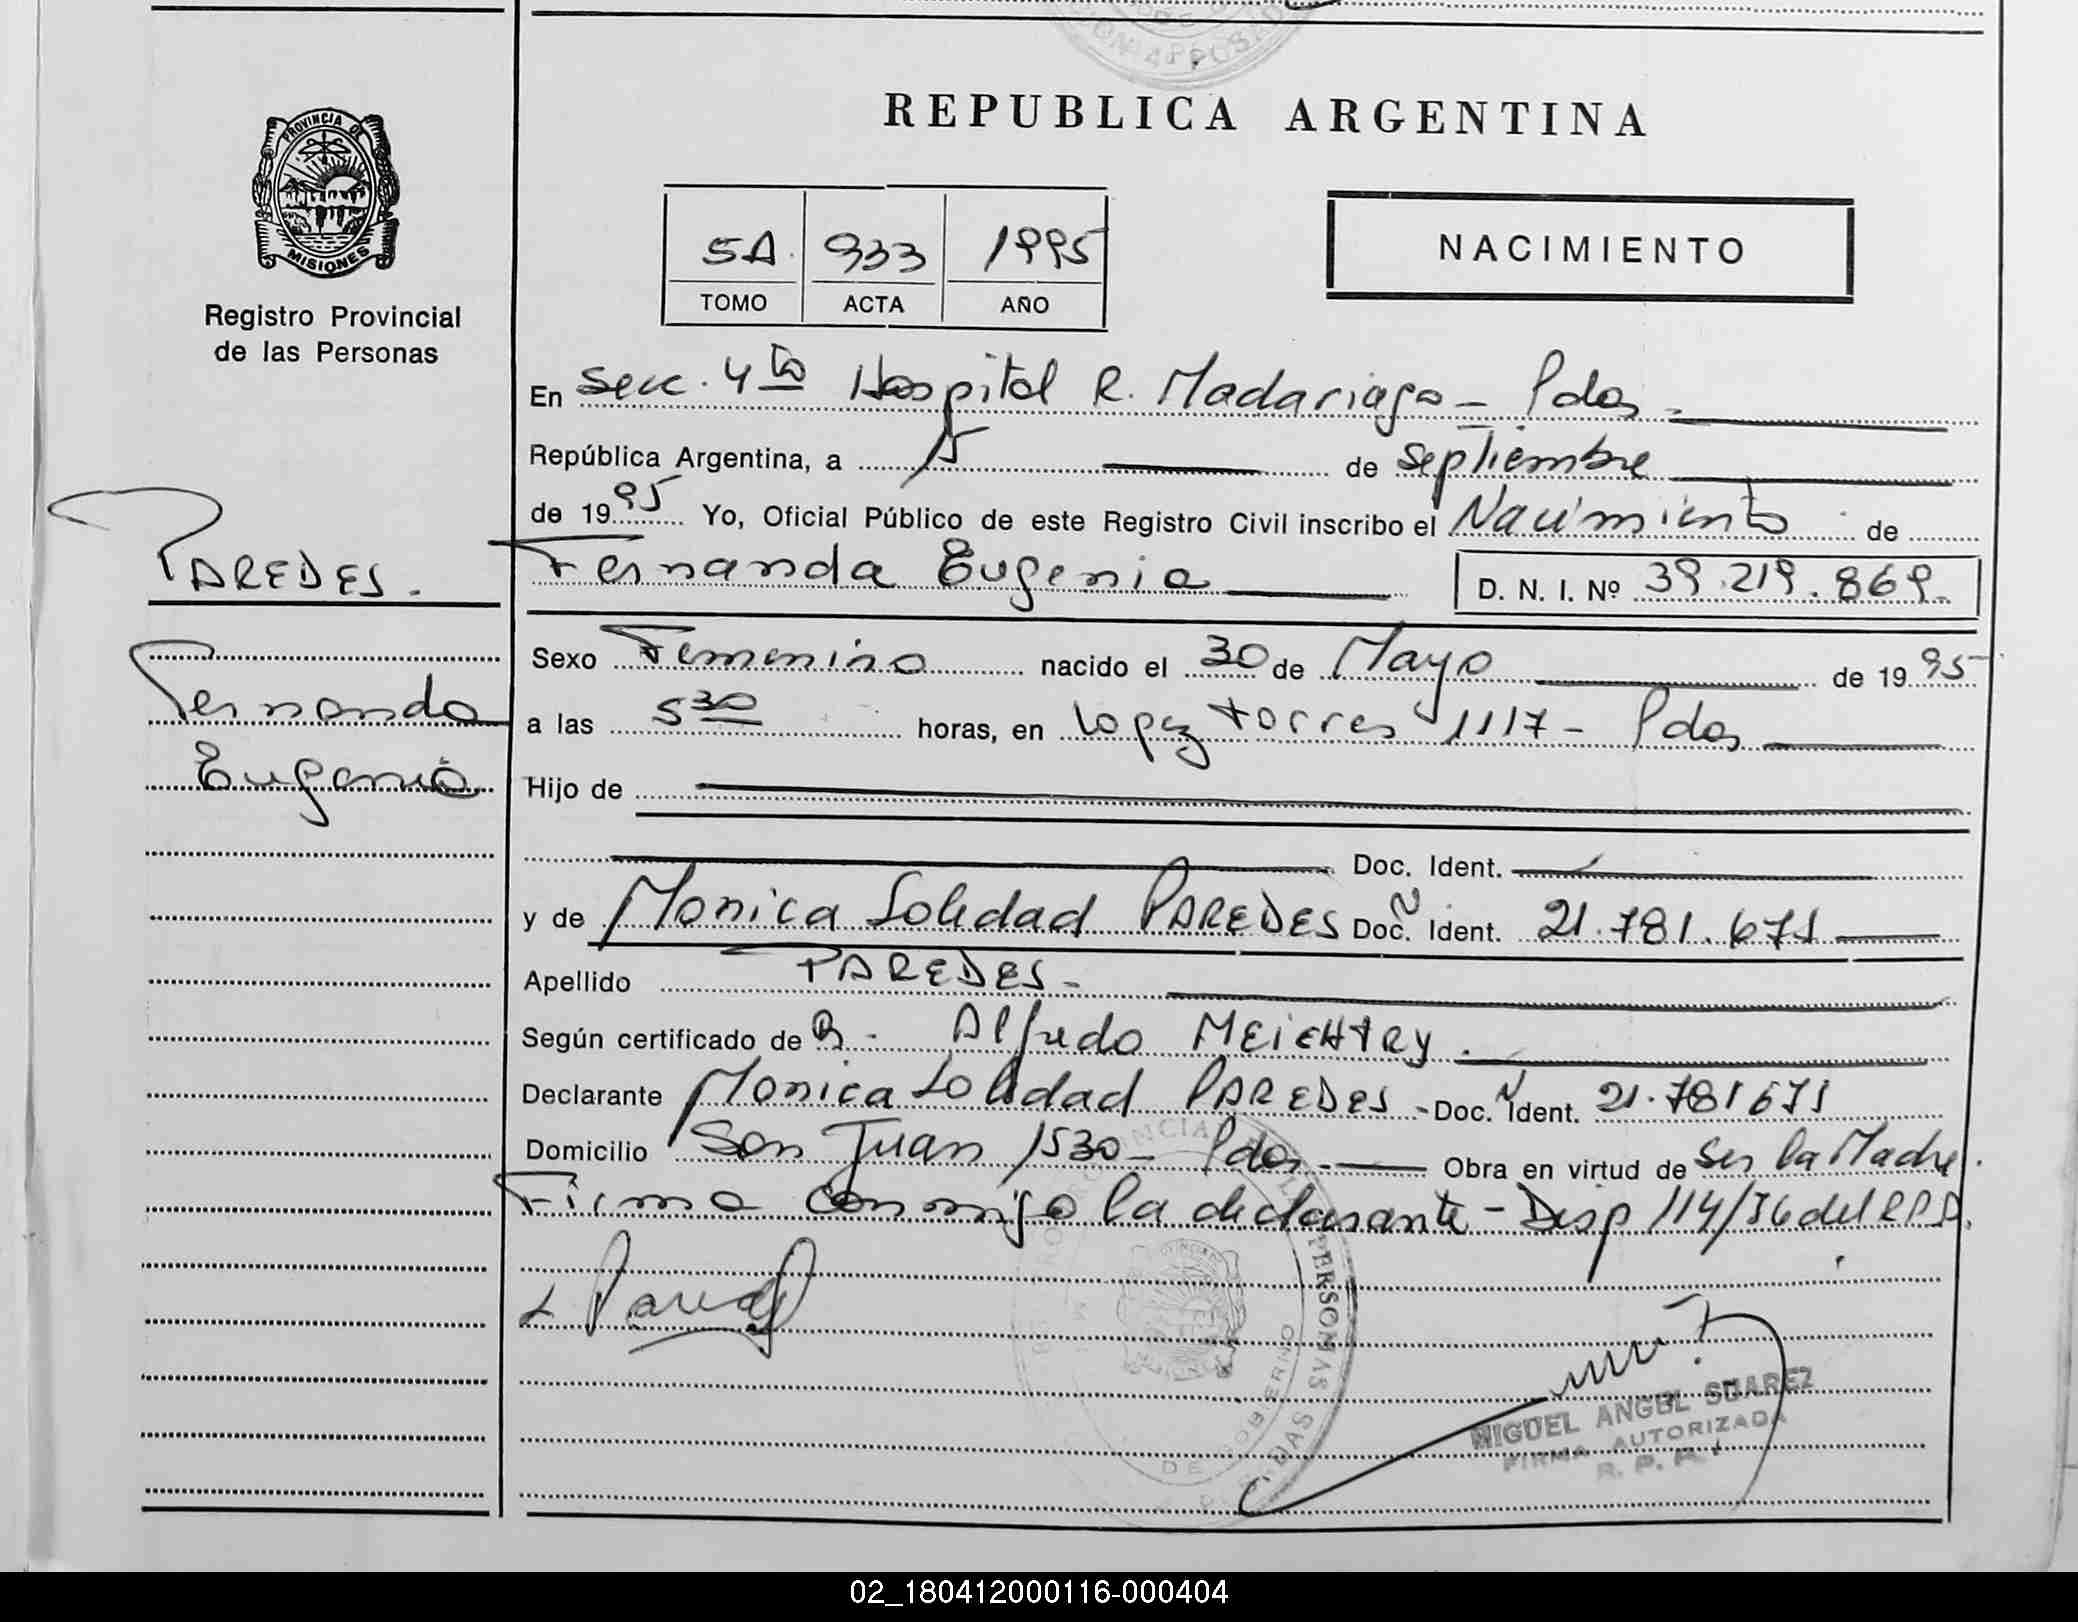 REPUBLICA ARGENTINA
PROVINCIA DE
MISIONES
Registro Provincial
de las Personas
5A 933 1995
TOMO ACTA AÑO
NACIMIENTO
En Secc. 4ta Hospital R. Madariaga - Pdas -
República Argentina, a 15 de septiembre
de 1995 Yo, Oficial Público de este Registro Civil inscribo el Nacimiento de
Fernanda Eugenia D. N. I. Nº 39.219.869.
PAREDES.
Fernanda
Eugenia
Sexo Femenino nacido el 30 de Mayo de 1995
a las 5 30 horas, en Lopez Torres 1117 - Pdas
Hijo de
Doc. Ident.
y de Monica Soledad PAREDES Doc. Ident. 21.781.671
Apellido PAREDES -
Según certificado de Alfredo MEICHTRY.
Declarante Monica Soledad PAREDES - Doc. Ident. 21.781671
Domicilio San Juan 1530 - Pdas. Obra en virtud de Ser la Madre.
Firma conmigo la declarante - Disp 114/76 del R.P.P.
MIGUEL ANGEL SUAREZ
FIRMA AUTORIZADA
R. P. P.
02_180412000116-000404